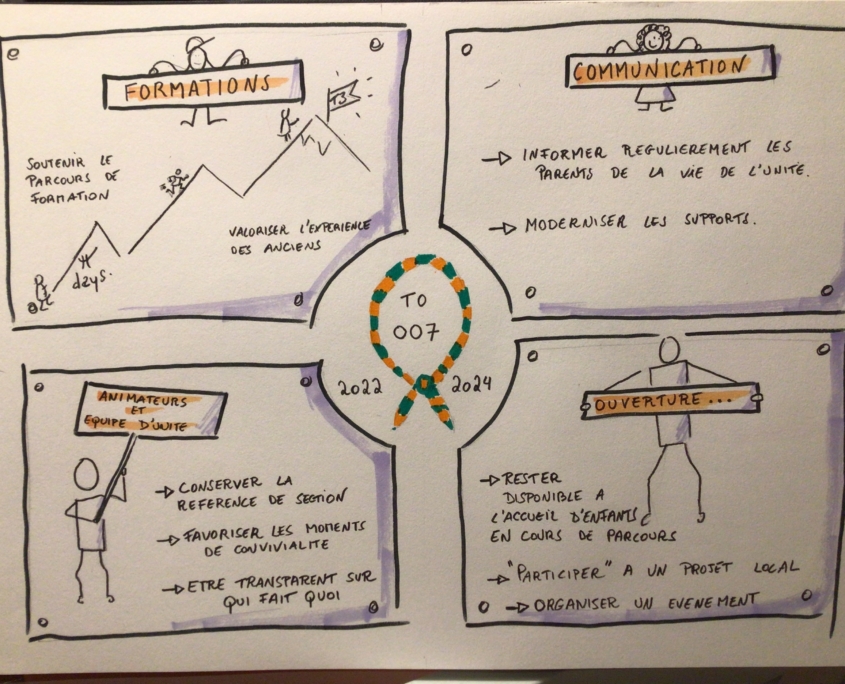 FORMATIONS
T3
SOUTENIR LE
PARCOURS DE
FORMATION
VALORISER L'EXPERIENCE
DES ANCIENS
days.
COMMUNICATION
INFORMER REGULIEREMENT LES
PARENTS DE LA VIE DE L'UNITE.
MODERNISER LES SUPPORTS.
TO
007
2022
2024
ANIMATEURS
ET
EQUIPE D'UNITE
CONSERVER LA
REFERENCE DE SECTION
FAVORISER LES MOMENTS
DE CONVIVIALITE
ETRE TRANSPARENT SUR
QUI FAIT QUOI
OUVERTURE...
RESTER
DISPONIBLE A
L'ACCUEIL D'ENFANTS
EN COURS DE PARCOURS
"PARTICIPER" A UN PROJET LOCAL
ORGANISER UN EVENEMENT